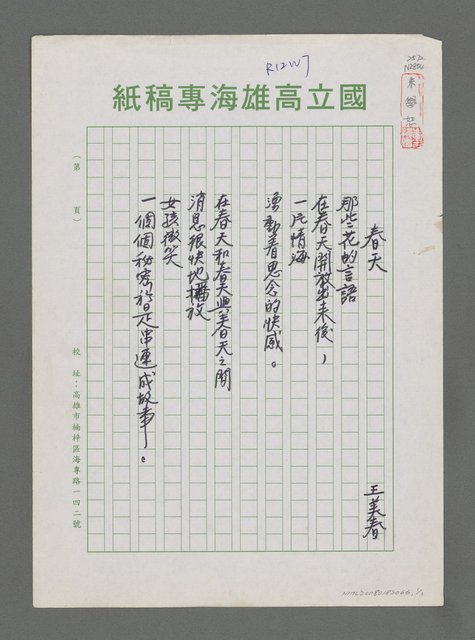 R12W7
國立高雄海專稿紙
春天
王美春
那些花的言語
在春天開放出來後，
一片情海
湧動着思念的快感。
在春天和春天與春天之間
消息很快地播放
女孩微笑
一個個秘密於是串連成故事。
（第　頁）
校址：高雄市楠梓區海專路一四二號